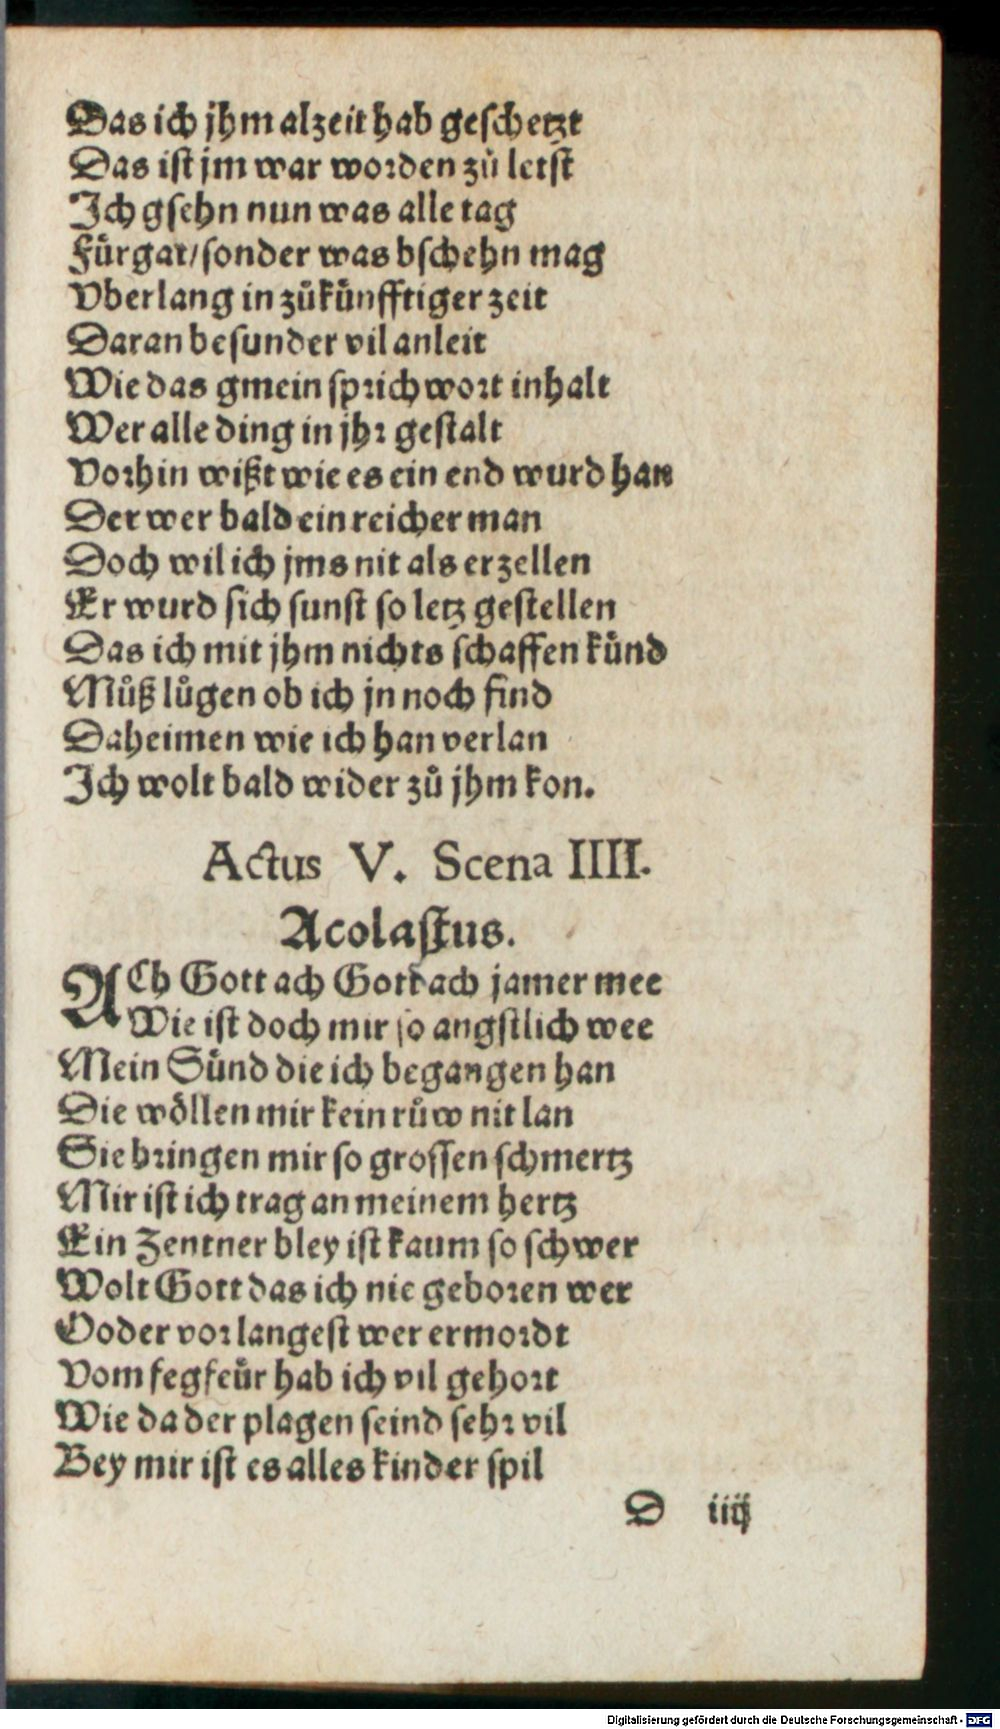 Das ich jhm alzeit hab geſchetzt
Das iſt jm war worden zů letſt
Ich gſehn nun was alle tag
Fürgat/ſonder was bſchehn mag
Vberlang in zůkünfftiger zeit
Daran beſunder vil anleit
Wie das gmein ſprichwort inhalt
Wer alle ding in jhr geſtalt
Vorhin wißt wie es ein end wurd han
Der wer bald ein reicher man
Doch wil ich jms nit als erzellen
Er wurd ſich ſunſt ſo letz geſtellen
Das ich mit jhm nichts ſchaffen künd
Můß lůgen ob ich jn noch find
Daheimen wie ich han verlan
Ich wolt bald wider zů jhm kon.
Actus V. Scena IIII.
Acolaſtus.
ACh Gott ach Gott ach jamer mee
Wie iſt doch mir ſo angſtlich wee
Mein Sünd die ich begangen han
Die wöllen mir kein růw nit lan
Sie bringen mir ſo groſſen ſchmertz
Mir iſt ich trag an meinem hertz
Ein Zentner bley iſt kaum ſo ſchwer
Wolt Gott das ich nie geboren wer
Ooder vor langeſt wer ermordt
Vom fegfeür hab ich vil gehort
Wie da der plagen ſeind ſehr vil
Bey mir iſt es alles kinder ſpil
D iiij
Digitalisierung gefördert durch die Deutsche Forschungsgemeinschaft - DFG